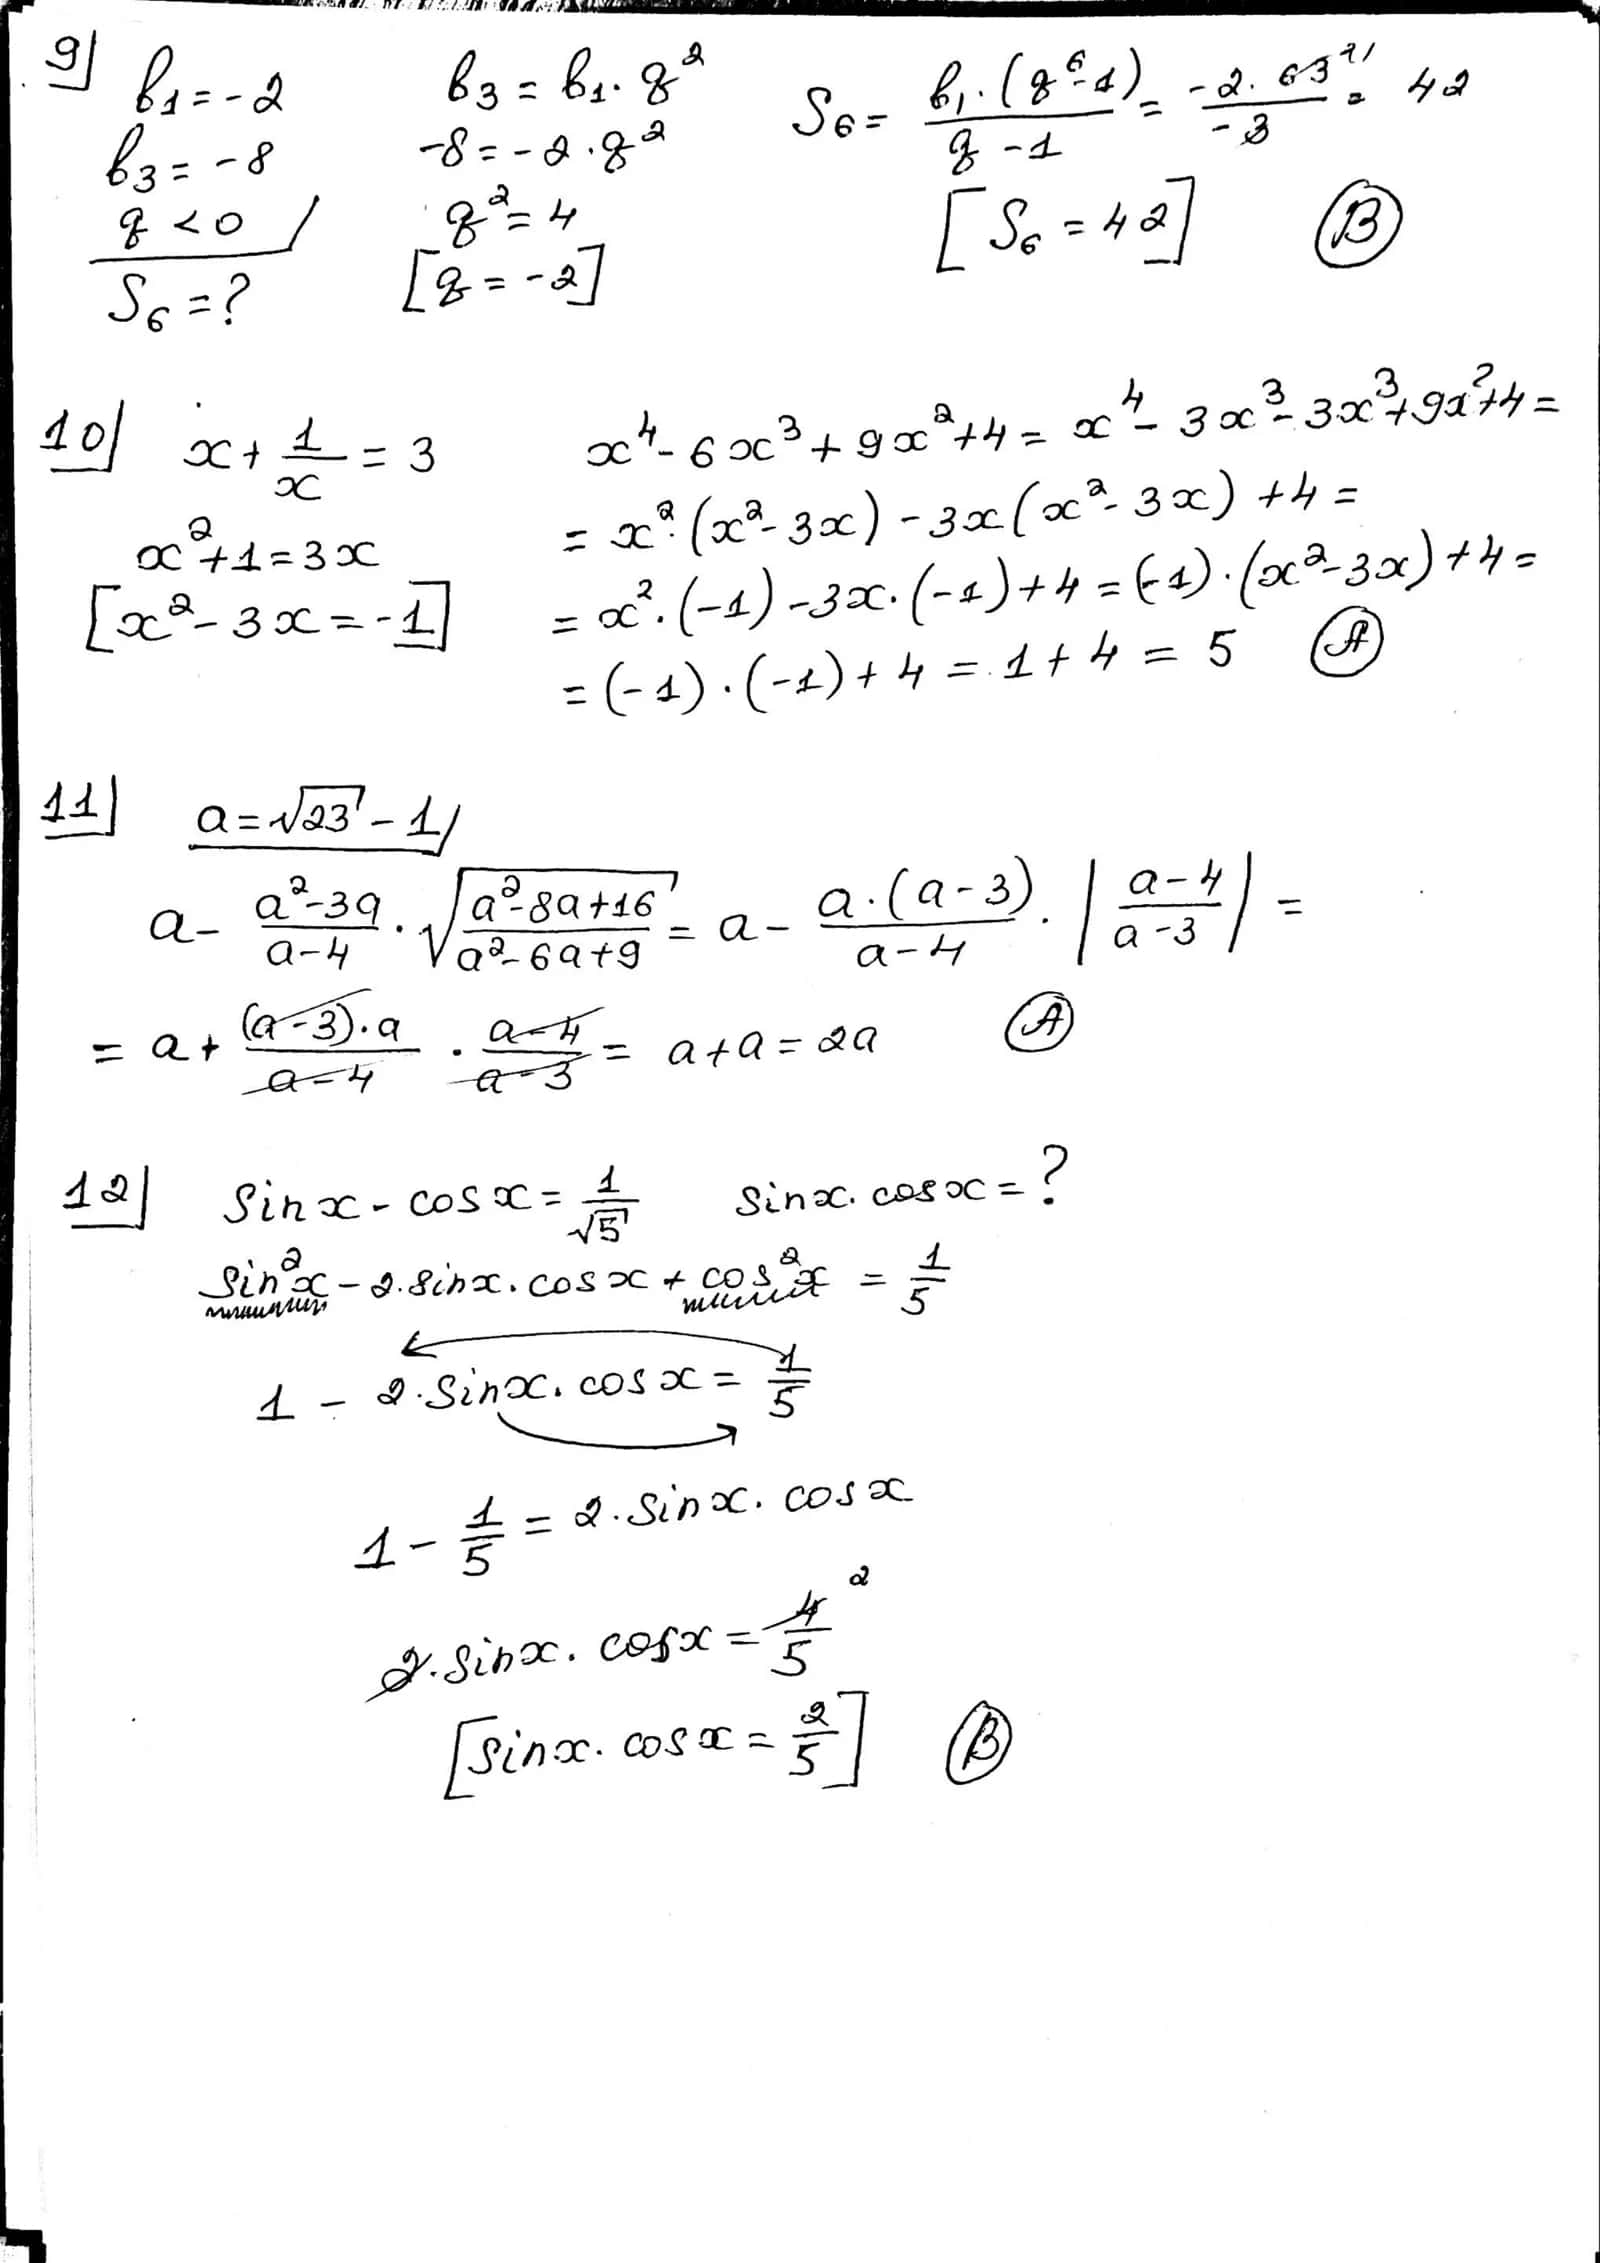 9)
b₁ = -2
b₃ = -8
q < 0
S₆ = ?
b₃ = b₁ · q²
-8 = -2 · q²
q² = 4
[q = -2]
S₆ = b₁·(q⁶-1)/(q-1) = -2·63²¹/-3 = 42
[S₆ = 42] B
10) x + 1/x = 3
x² + 1 = 3x
[x² - 3x = -1]
x⁴ - 6x³ + 9x² + 4 = x⁴ - 3x³ - 3x³ + 9x² + 4 =
= x²·(x² - 3x) - 3x(x² - 3x) + 4 =
= x²·(-1) - 3x·(-1) + 4 = (-1)·(x² - 3x) + 4 =
= (-1)·(-1) + 4 = 1 + 4 = 5 A
11) a = √23 - 1
a - (a²-3a)/(a-4) · √((a²-8a+16)/(a²-6a+9)) = a - a·(a-3)/(a-4) · |(a-4)/(a-3)| =
= a + (a-3)·a/(a-4) · (a-4)/(a-3) = a + a = 2a A
12) sinx - cosx = 1/√5 sinx·cosx = ?
sin²x - 2·sinx·cosx + cos²x = 1/5
1 - 2·sinx·cosx = 1/5
1 - 1/5 = 2·sinx·cosx
2·sinx·cosx = 4/5 2
[sinx·cosx = 2/5] B